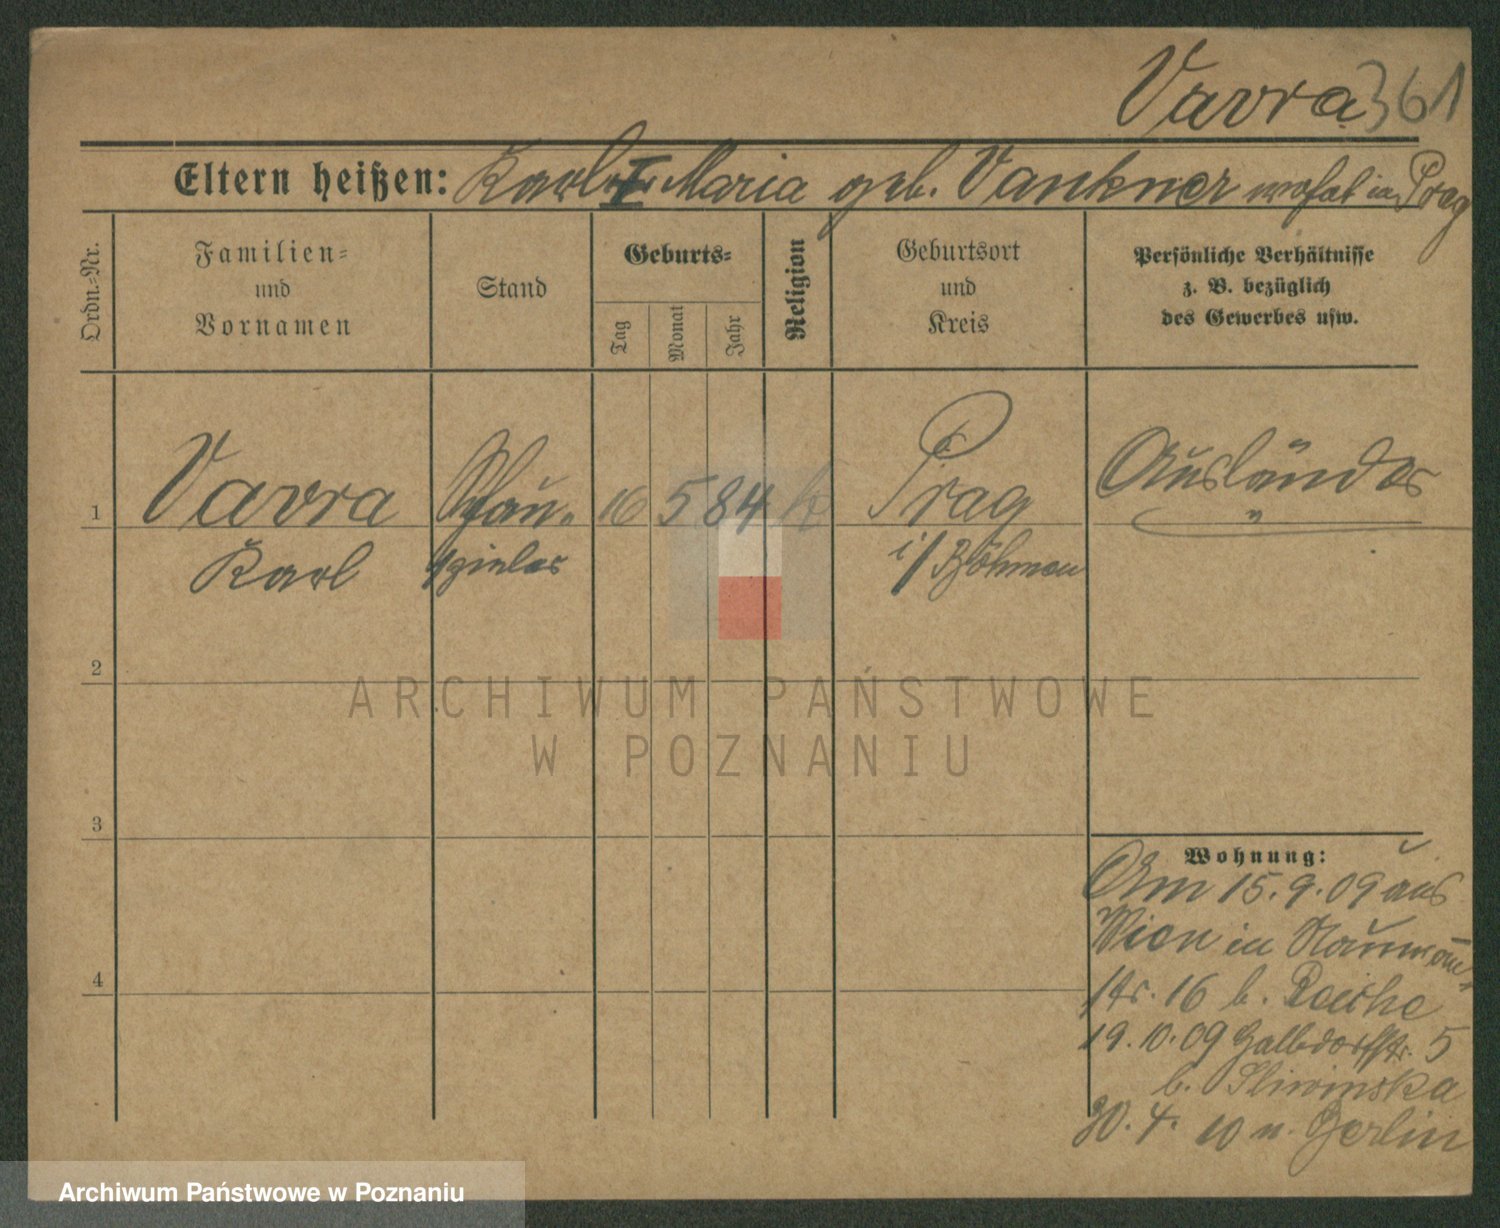 Vavra 361
Eltern heißen: Karl I Maria geb. Vankner wohnt in Prag
Ordn.-Nr.
Familien-
und
Vornamen
Stand
Geburts-
Tag
Monat
Jahr
Religion
Geburtsort
und
Kreis
Persönliche Verhältnisse
z. B. bezüglich
des Gewerbes usw.
1 Vavra Schau- 16 5 84 k Prag Ausländer
Karl spieler i/Böhmen
2
ARCHIWUM PAŃSTWOWE
W POZNANIU
3
Wohnung:
Am 15.9.09 aus
Wien in Naumann
str. 16 b.
4
19.10.09 str. 5
b. Sliwinska
30.4.10 n. Berlin
Archiwum Państwowe w Poznaniu